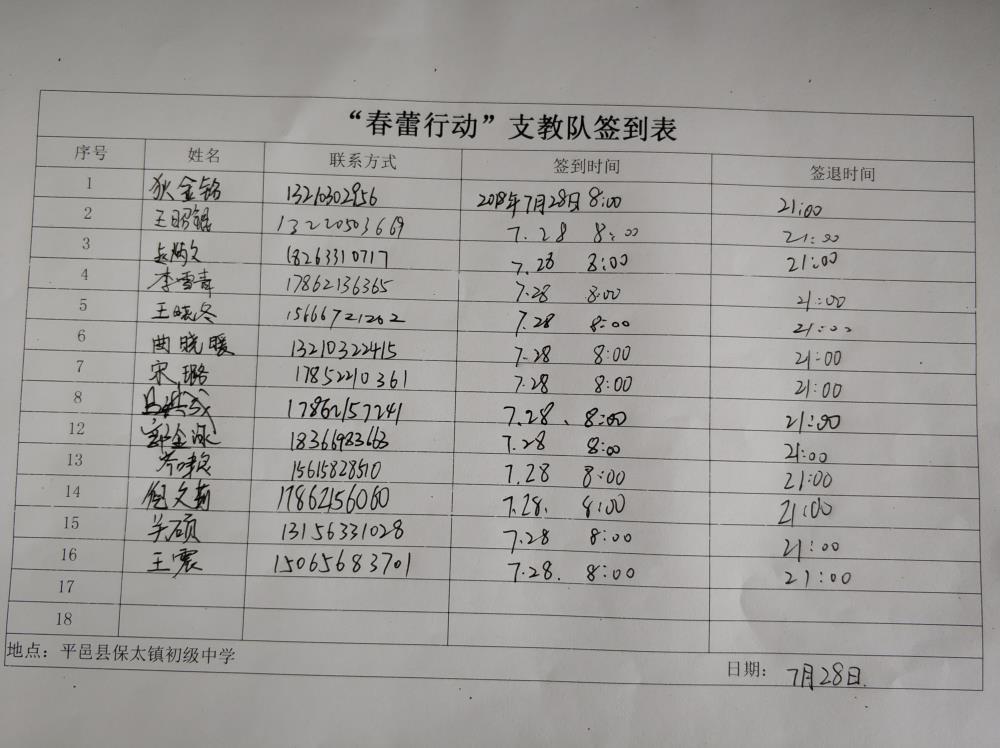 “春蕾行动”支教队签到表
序号 姓名 联系方式 签到时间 签退时间
1 狄金铭 13210302956 2018年7月28日 8:00 21:00
2 王昭锟 13220503669 7.28 8:00 21:00
3 18263310717 7.28 8:00 21:00
4 李雪青 17862136365 7.28 8:00 21:00
5 王晓冬 15666721262 7.28 8:00 21:00
6 曲晓暖 13210322415 7.28 8:00 21:00
7 宋璐 17852210361 7.28 8:00 21:00
8 17862157241 7.28. 8:00 21:00
12 18366983663 7.28 8:00 21:00
13 15615828510 7.28 8:00 21:00
14 倪文莉 17862156060 7.28. 8:00 21:00
15 关硕 13156331028 7.28 8:00 21:00
16 王震 15065683701 7.28. 8:00 21:00
17
18
地点：平邑县保太镇初级中学
日期：7月28日.